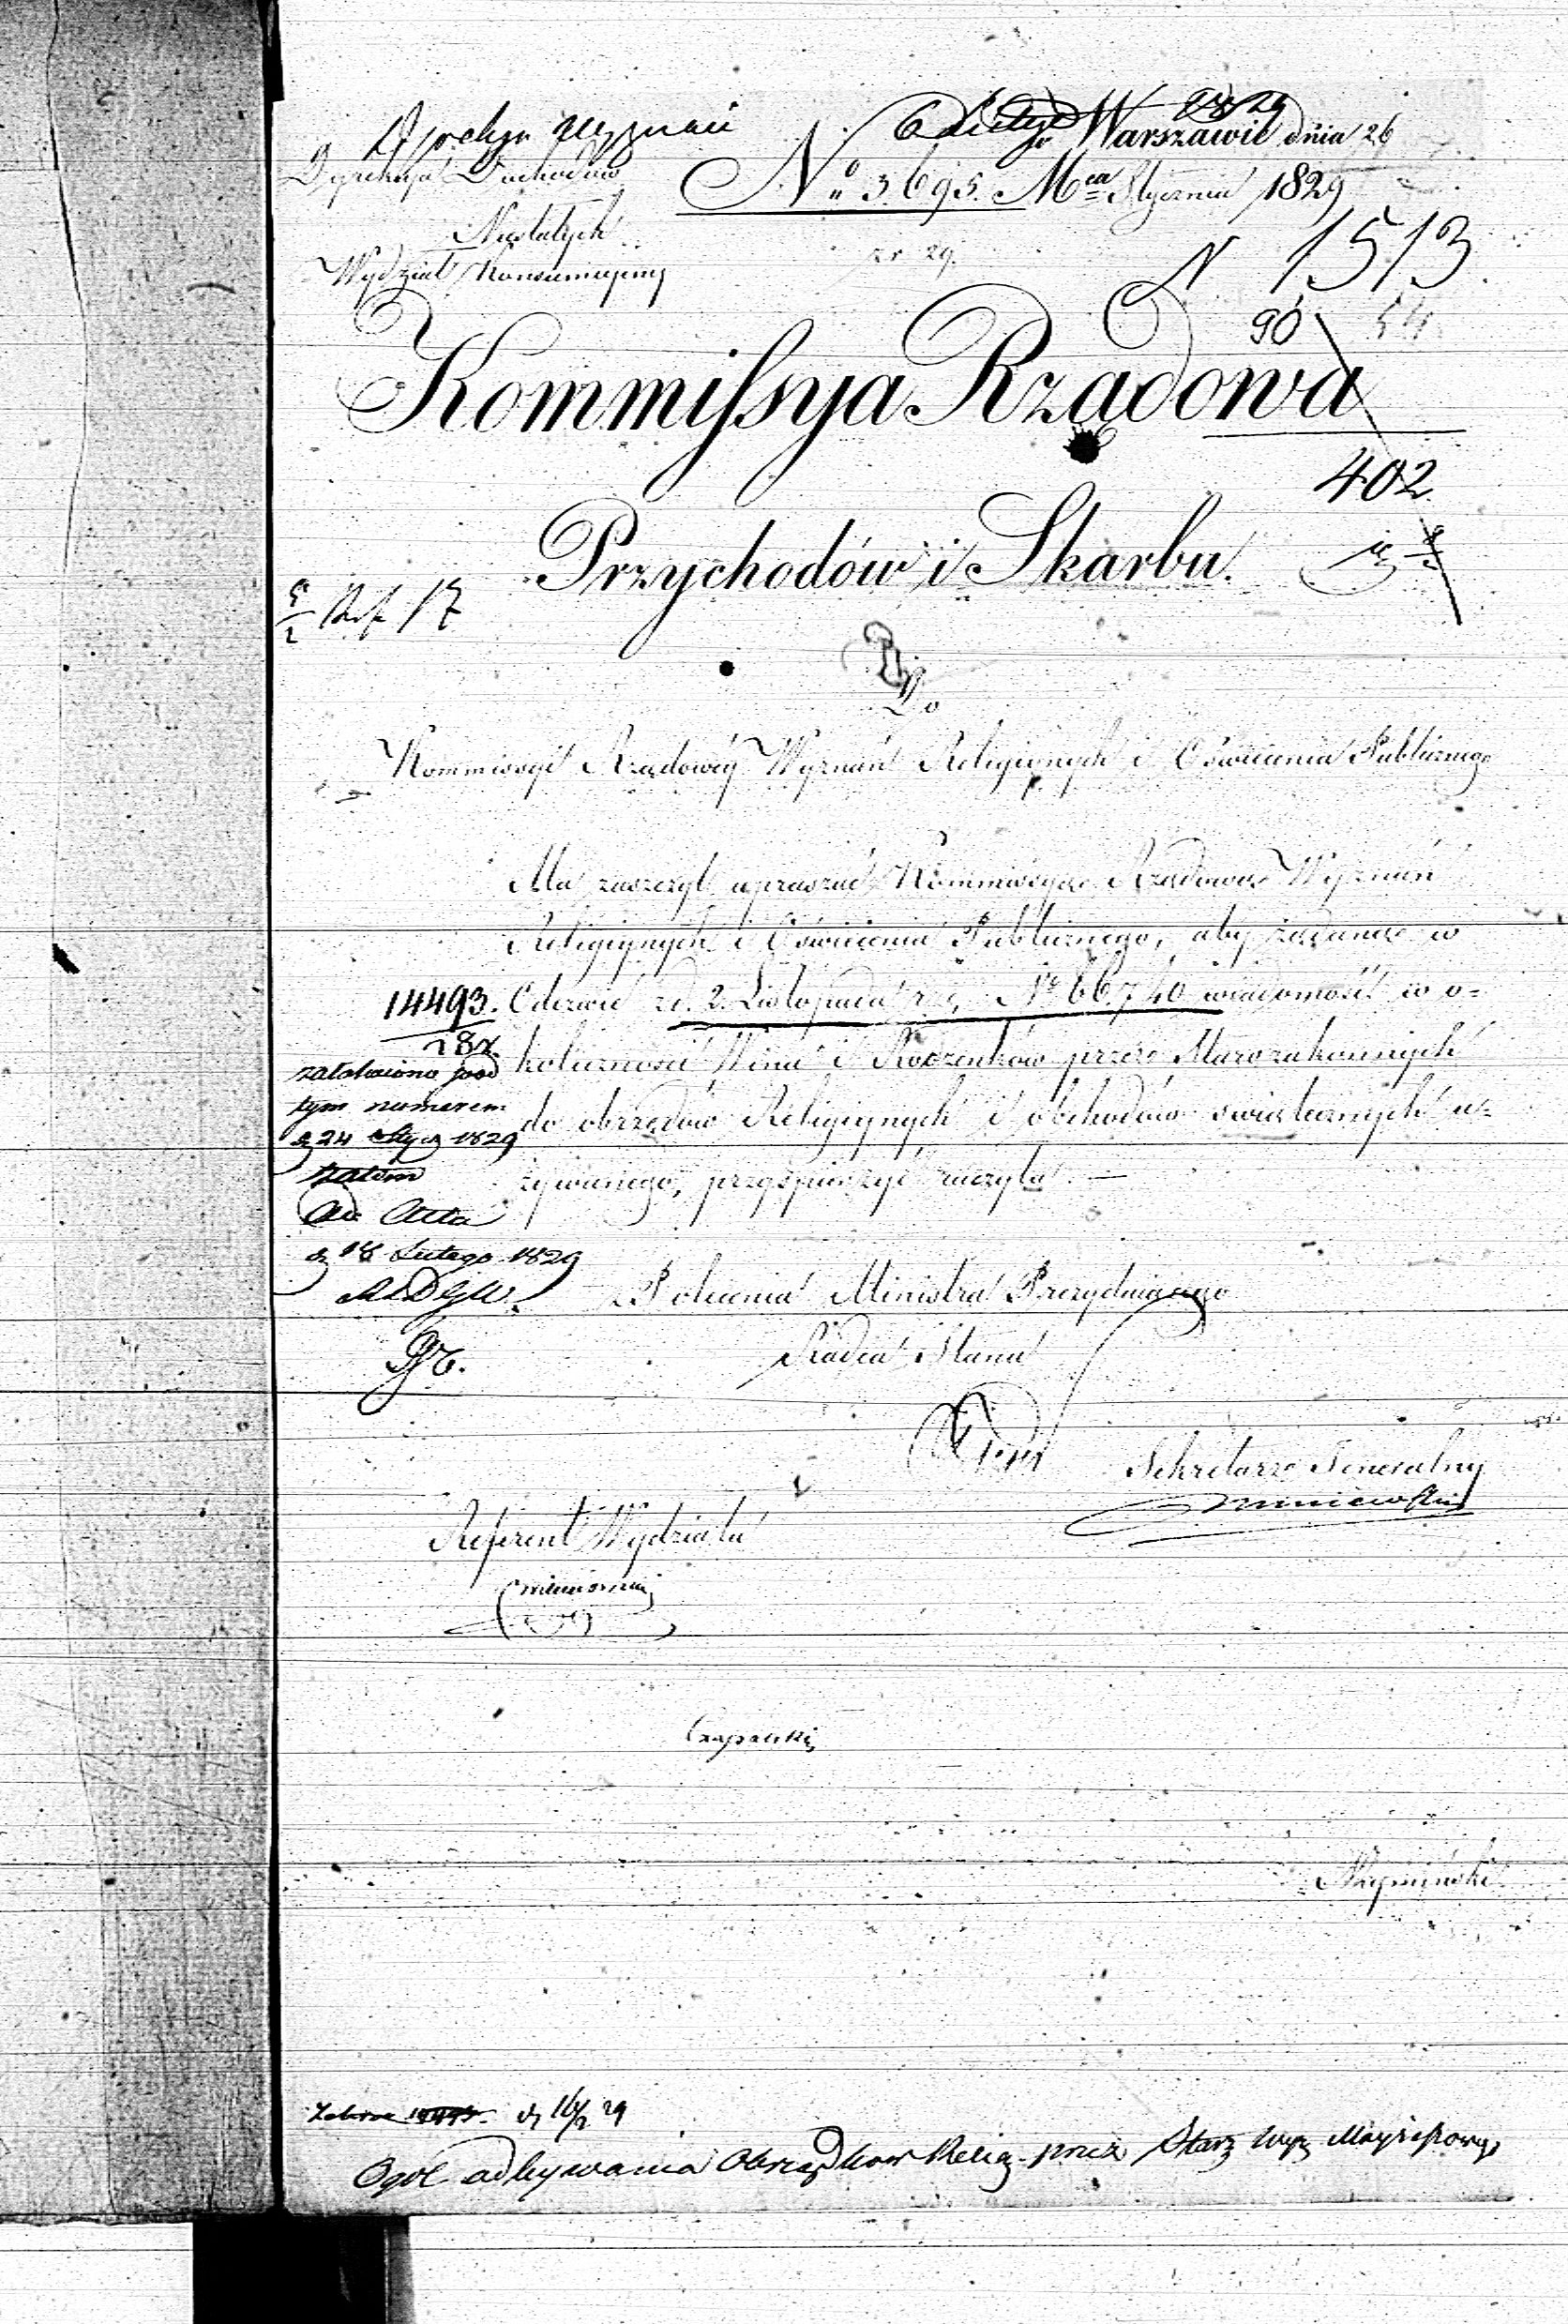 Dyrekcya Wyznań
Dyrekcya Dochodów
Niestałych
Wydział Konsumcyiny
6 Lutego 1829
w Warszawie dnia 26
No 3695. Mca Stycznia 1829
N 1513
90 54
Kommissya Rządowa
402
Przychodów i Skarbu.
17
Do
Kommissyi Rządowéy Wyznań Religiynych i Oświecenia Publicznego
Ma zaszczyt upraszać Kommissyą Rządową Wyznań
Religiynych i Oświecenia Publicznego, aby żądaną w
Odezwie z d. 2. Listopada r. z. Nr 66740 wiadomość w o=
koliczności Wina i Rodzenków przez Starozakonnych
do obrzędów Religiynych i obchodów świątecznych u=
żywanego, przyspieszyć raczyła. —
14493.
28
załatwiono pod
tym numerem
d 24 Stycz 1829
zatem
Ad Acta
d 18 Lutego 1829
z Polecenia Ministra Prezyduiącego
Radca Stanu
Sekretarz Generalny
Referent Wydziału
Czapalski
d 16/2 29
Ogól odbywania Obrządków Relig. przez Starz Wyz